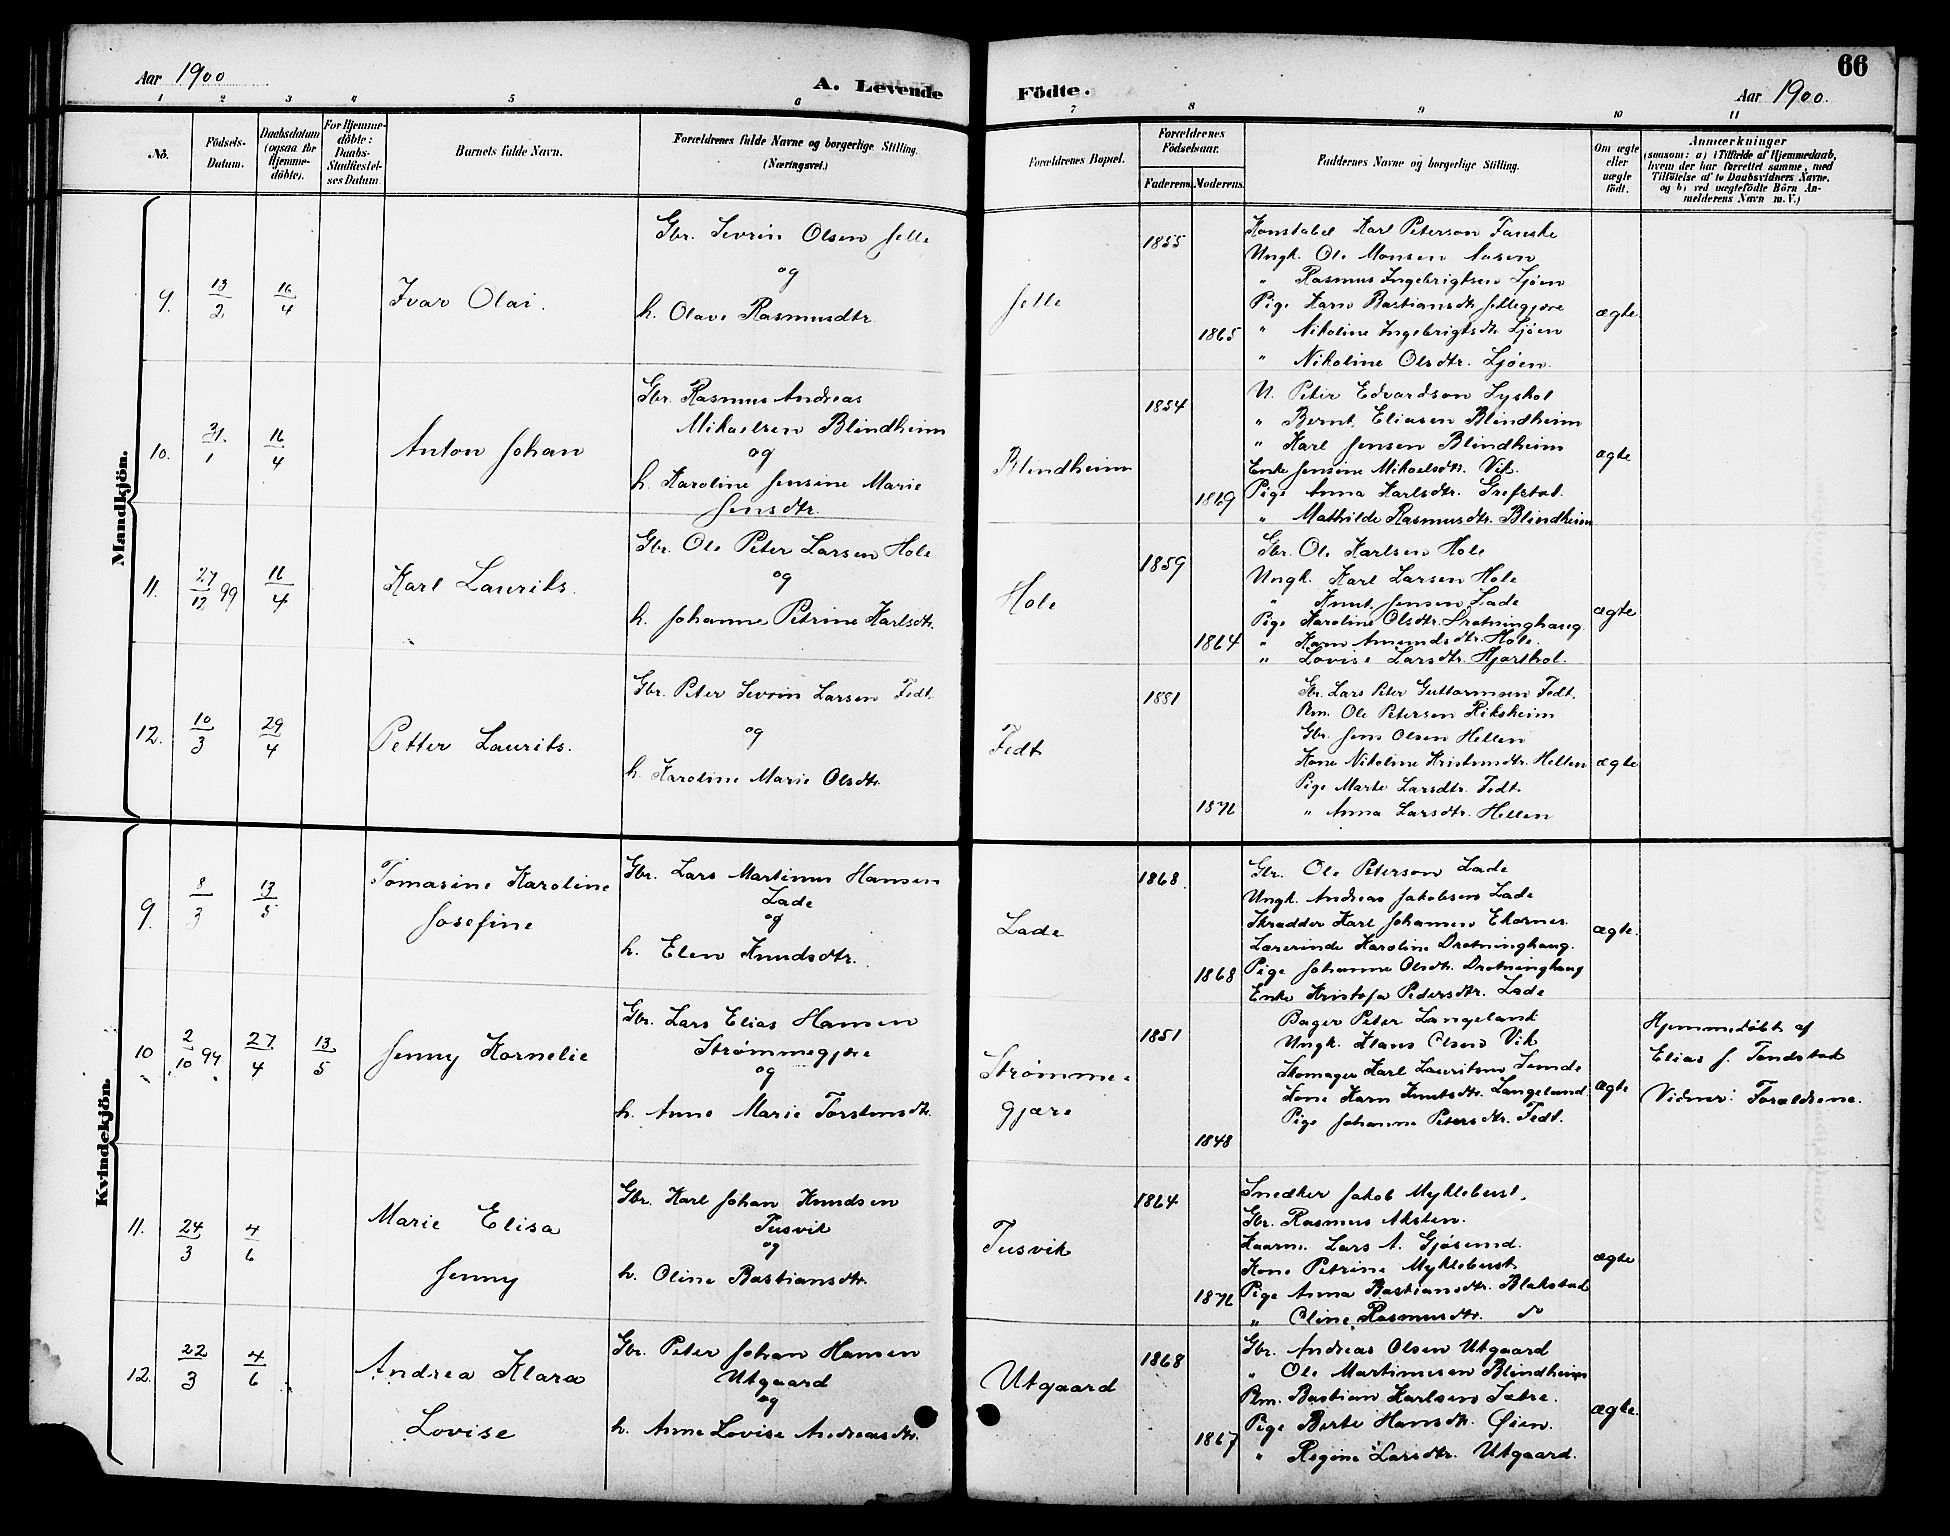 Aar 1900
A. Levende
Födte.
66
Aar 1900.
1 2 3 4 5 6 7 8 9 10 11
Nô.
Födsels-
Datum.
Daabsdatum
(ogsaa for
Hjemme-
döbte).
For Hjemme-
döbte:
Daabs-
Stadfæstel-
ses Datum.
Barnets fulde Navn.
Forældrenes fulde Navne og borgerlige Stilling.
(Næringsvei.)
Forældrenes Bopæl.
Forældrenes
Födselsaar.
Faderens. Moderens.
Faddernes Navne og borgerlige Stilling.
Om ægte
eller
uægte
födt.
Anmærkninger
(saasom: a) i Tilfælde af Hjemmedaab,
hvem der har forrettet samme, med
Tilföielse af to Daabsvidners Navne,
og b) ved uægtefödte Börn An-
melderens Navn m. V.)
Mandkjön.
9. 13/2 16/4
Ivar Olai.
Gbr. Sevrin Olsen Jelle
og
h. Olave Rasmusdtr.
Jelle
1855
1865
Konstabel Karl Peterson Fauske
Ungk. Ole Monsen Aasen
" Rasmus Ingebrigtsen Ljøen
Pige Karn Bastiansdtr. Jellegjære
" Nikoline Ingebrigtsdtr. Ljøen
" Nikoline Olsdtr. Ljøen.
ægte
10. 31/1 16/4
Anton Johan
Gbr. Rasmus Andreas
Mikaelsen Blindheim
og
h. Karoline Jensine Marie
Jensdtr.
Blindheim
1854
1869
U. Peter Edvardson Lyshol
" Bernt Eliasen Blindheim
" Karl Jensen Blindheim
Enke Jensine Mikaelsdtr. Vik.
Pige Anna Karlsdtr. Grefstad.
" Mathilde Rasmusdtr. Blindheim
ægte
11. 27/12 99 16/4
Karl Laurits.
Gbr. Ole Peter Larsen Hole
og
h. Johanne Petrine Karlsdtr.
Hole
1859
1864
Gbr. Ole Karlsen Hole
Ungk. Karl Larsen Hole
" Knut Jensen Lade
Pige Karoline Olsdtr. Drotninghaug
" Karn Amundsdtr. Hole.
" Lovise Larsdtr. Hjorthol.
ægte
12. 10/3 29/4
Petter Laurits.
Gbr. Peter Sevrin Larsen Fedt
og
h. Karoline Marie Olsdtr.
Fedt
1881
1876
Gbr. Lars Peter Guttormsen Fedt.
Rm. Ole Petersen Riksheim
Gbr. Jens Olsen Hellen
Kone Nikoline Kristensdtr. Hellen
Pige Marte Larsdtr. Fedt
" Anna Larsdtr. Hellen
ægte
Kvindekjön.
9. 8/3 13/5
Tomasine Karoline
Josefine
Gbr. Lars Martinus Hansen
Lade
og
h. Elen Knudsdtr.
Lade
1868.
1868
Gbr. Ole Peterson Lade
Ungk. Andreas Jakobsen Lade
Skradder Karl Johannen Ekornes.
Lærerinde Karoline Drotninghaug.
Pige Johanne Olsdtr. Drotninghaug
Enke Kristofa Pedersdtr. Lade
ægte.
10 2/10 99 27/4 13/5
Jenny Kornelie
Gbr. Lars Elias Hansen
Strømmegjære
og
h. Anne Marie Torstensdtr.
Strømme-
gjære
1851
1848
Bager Peter Langeland
Ungk. Klaus Olsen Vik
Skomager Karl Lauritsen Sunde
Kone Karn Knutsdtr. Langeland
Pige Johanne Petersdtr. Fedt.
Ægte
Hjemmedøbt af
Elias J. Tandstad
Vidner: Forældrene.
11. 24/3 4/6
Marie Elisa
Jenny
Gbr. Karl Johan Knudsen
Tusvik
og
h. Oline Bastiansdtr.
Tusvik
1864
1876
Snedker Jakob Myklebust.
Gbr. Rasmus Aksten.
Kaarm. Lars A. Gjøsund.
Kone Petrine Myklebust
Pige Anna Bastiansdtr. Blakstad
" Oline Rasmusdtr. do
ægte
12. 22/3 4/6
Andrea Klara
Lovise
Gbr. Peter Johan Hansen
Utgaard
og
h. Anne Lovise Andreasdtr.
Utgaard
1868
1867
Gbr. Andreas Olsen Utgaard
" Ole Martinusen Blindheim
Rm. Bastian Karlsen Sætre.
Pige Berte Hansdtr. Øien.
" Regine Larsdtr. Utgaard.
ægte.